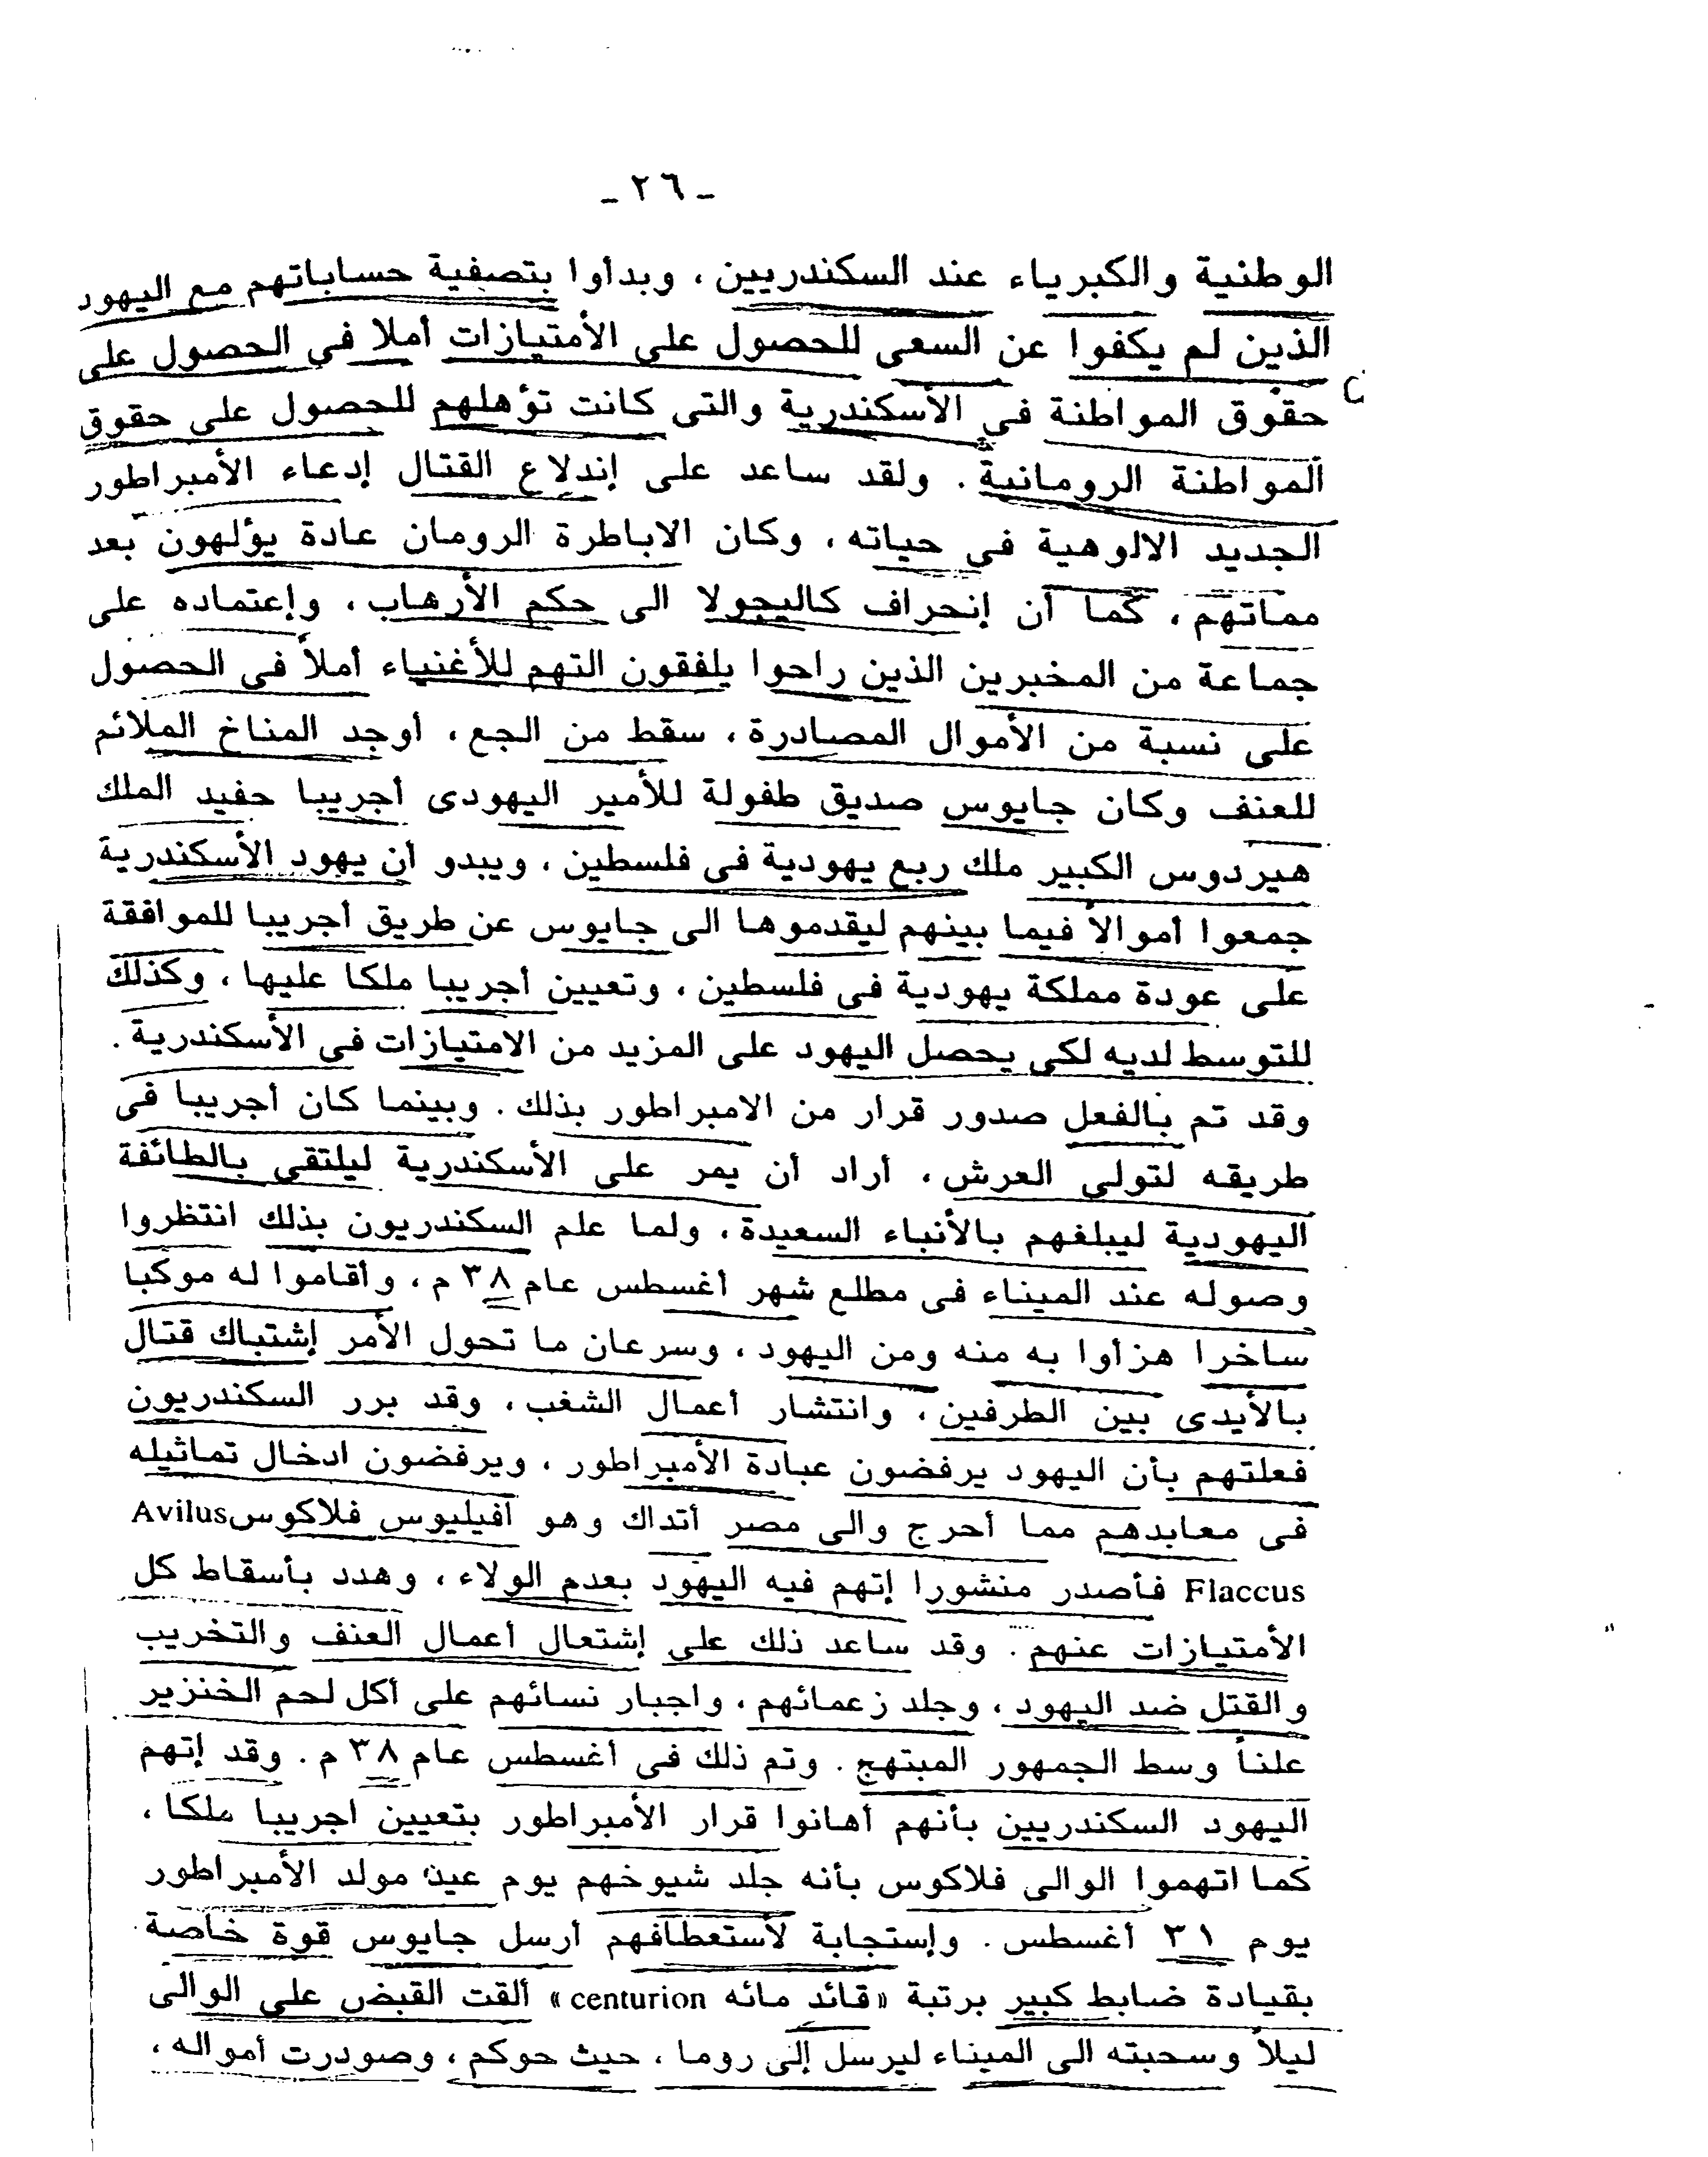 ـ ٢٦ ـ
الوطنية والكبرياء عند السكندريين ، وبدأوا بتصفية حساباتهم مع اليهود
الذين لم يكفوا عن السعى للحصول على الأمتيازات أملا في الحصول على
حقوق المواطنة في الأسكندرية والتى كانت تؤهلهم للحصول على حقوق
المواطنة الرومانية . ولقد ساعد على إندلاع القتال إدعاء الأمبراطور
الجديد الالوهية في حياته ، وكان الاباطرة الرومان عادة يؤلهون بعد
مماتهم ، كما أن إنحراف كاليجولا الى حكم الأرهاب ، وإعتماده على
جماعة من المخبرين الذين راحوا يلفقون التهم للأغنياء أملاً في الحصول
على نسبة من الأموال المصادرة ، سقط من الجع ، أوجد المناخ الملائم
للعنف وكان جايوس صديق طفولة للأمير اليهودى أجريبا حفيد الملك
هيردوس الكبير ملك ربع يهودية فى فلسطين ، ويبدو أن يهود الأسكندرية
جمعوا أموالاً فيما بينهم ليقدموها الى جايوس عن طريق أجريبا للموافقة
على عودة مملكة يهودية فى فلسطين ، وتعيين أجريبا ملكا عليها ، وكذلك
للتوسط لديه لكى يحصل اليهود على المزيد من الامتيازات فى الأسكندرية .
وقد تم بالفعل صدور قرار من الامبراطور بذلك . وبينما كان أجريبا فى
طريقه لتولى العرش ، أراد أن يمر على الأسكندرية ليلتقى بالطائفة
اليهودية ليبلغهم بالأنباء السعيدة ، ولما علم السكندريون بذلك انتظروا
وصوله عند الميناء فى مطلع شهر أغسطس عام ٣٨ م ، وأقاموا له موكبا
ساخرا هزأوا به منه ومن اليهود ، وسرعان ما تحول الأمر إشتباك قتال
بالأيدى بين الطرفين ، وانتشار أعمال الشغب ، وقد برر السكندريون
فعلتهم بأن اليهود يرفضون عبادة الأمبراطور ، ويرفضون ادخال تماثيله
فى معابدهم مما أحرج والى مصر أتداك وهو أفيليوس فلاكوس Avilus
Flaccus فأصدر منشورا إتهم فيه اليهود بعدم الولاء ، وهدد بأسقاط كل
الأمتيازات عنهم . وقد ساعد ذلك على إشتعال أعمال العنف والتخريب
والقتل ضد اليهود ، وجلد زعمائهم ، واجبار نسائهم على أكل لحم الخنزير
علناً وسط الجمهور المبتهج . وتم ذلك فى أغسطس عام ٣٨ م . وقد إتهم
اليهود السكندريين بأنهم أهانوا قرار الأمبراطور بتعيين اجريبا ملكا ،
كما اتهموا الوالى فلاكوس بأنه جلد شيوخهم يوم عيد مولد الأمبراطور
يوم ٣١ أغسطس . وإستجابة لأستعطافهم أرسل جايوس قوة خاصة
بقيادة ضابط كبير برتبة «قائد مائه centurion » ألقت القبض على الوالى
ليلاً وسحبته الى الميناء ليرسل إلى روما ، حيث حوكم ، وصودرت أمواله ،